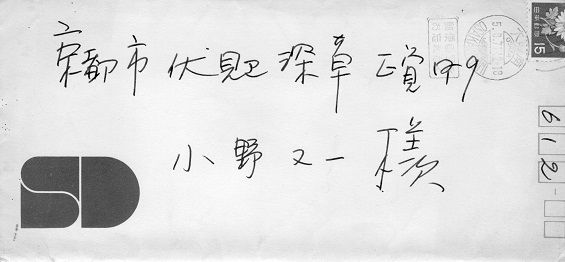 京都市 伏見区 深草 正覚町9
小野又一 様
612-
SD
日本郵便
15